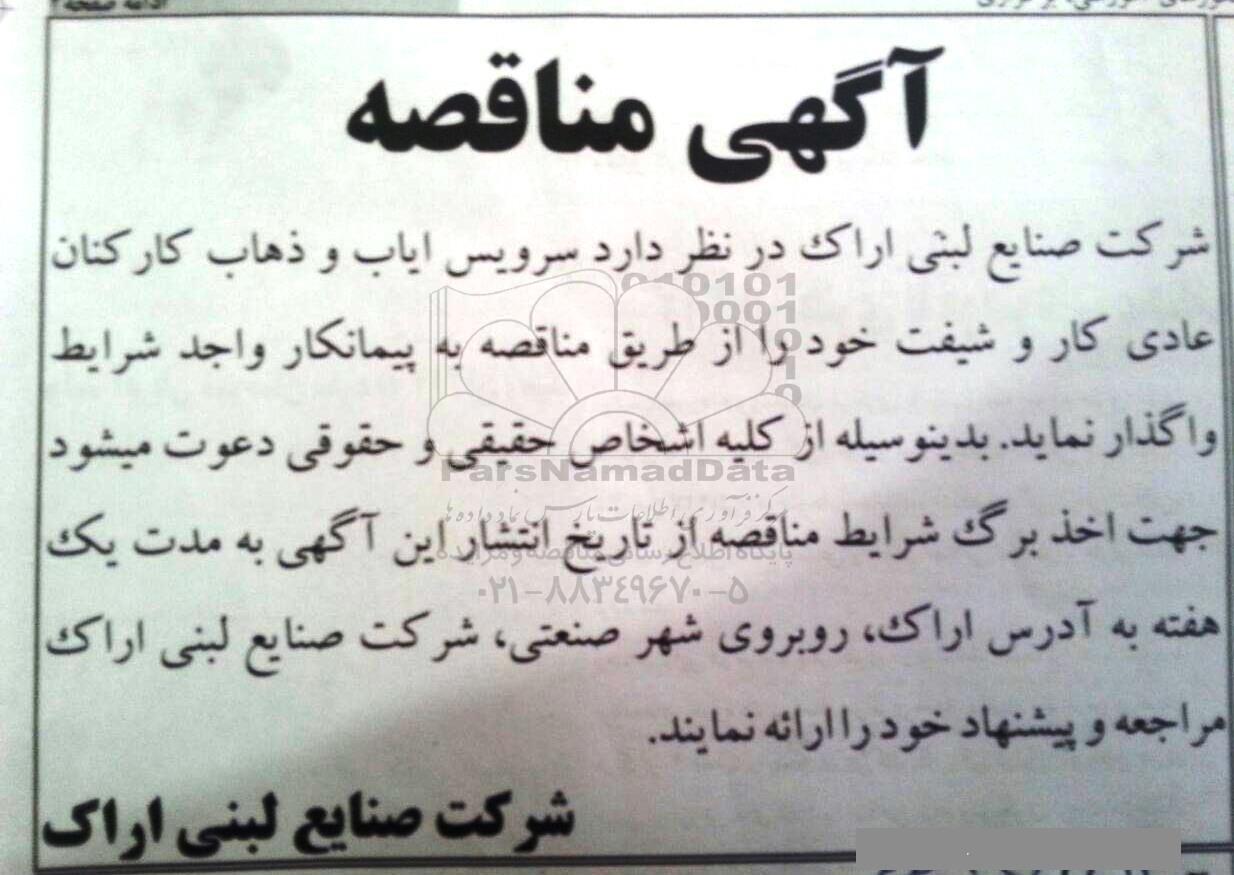 ادامه صفحه ۲
آگهی مناقصه
شرکت صنایع لبنی اراک در نظر دارد سرویس ایاب و ذهاب کارکنان
عادی کار و شیفت خود را از طریق مناقصه به پیمانکار واجد شرایط
واگذار نماید. بدینوسیله از کلیه اشخاص حقیقی و حقوقی دعوت میشود
جهت اخذ برگ شرایط مناقصه از تاریخ انتشار این آگهی به مدت یک
هفته به آدرس اراک، روبروی شهر صنعتی، شرکت صنایع لبنی اراک
مراجعه و پیشنهاد خود را ارائه نمایند.
شرکت صنایع لبنی اراک
010101
0001
ParsNamadData
مرکز فرآوری اطلاعات پارس نماد داده ها
پایگاه اطلاع رسانی مناقصه و مزایده
۰۲۱-۸۸۳۴۹۶۷۰-۵